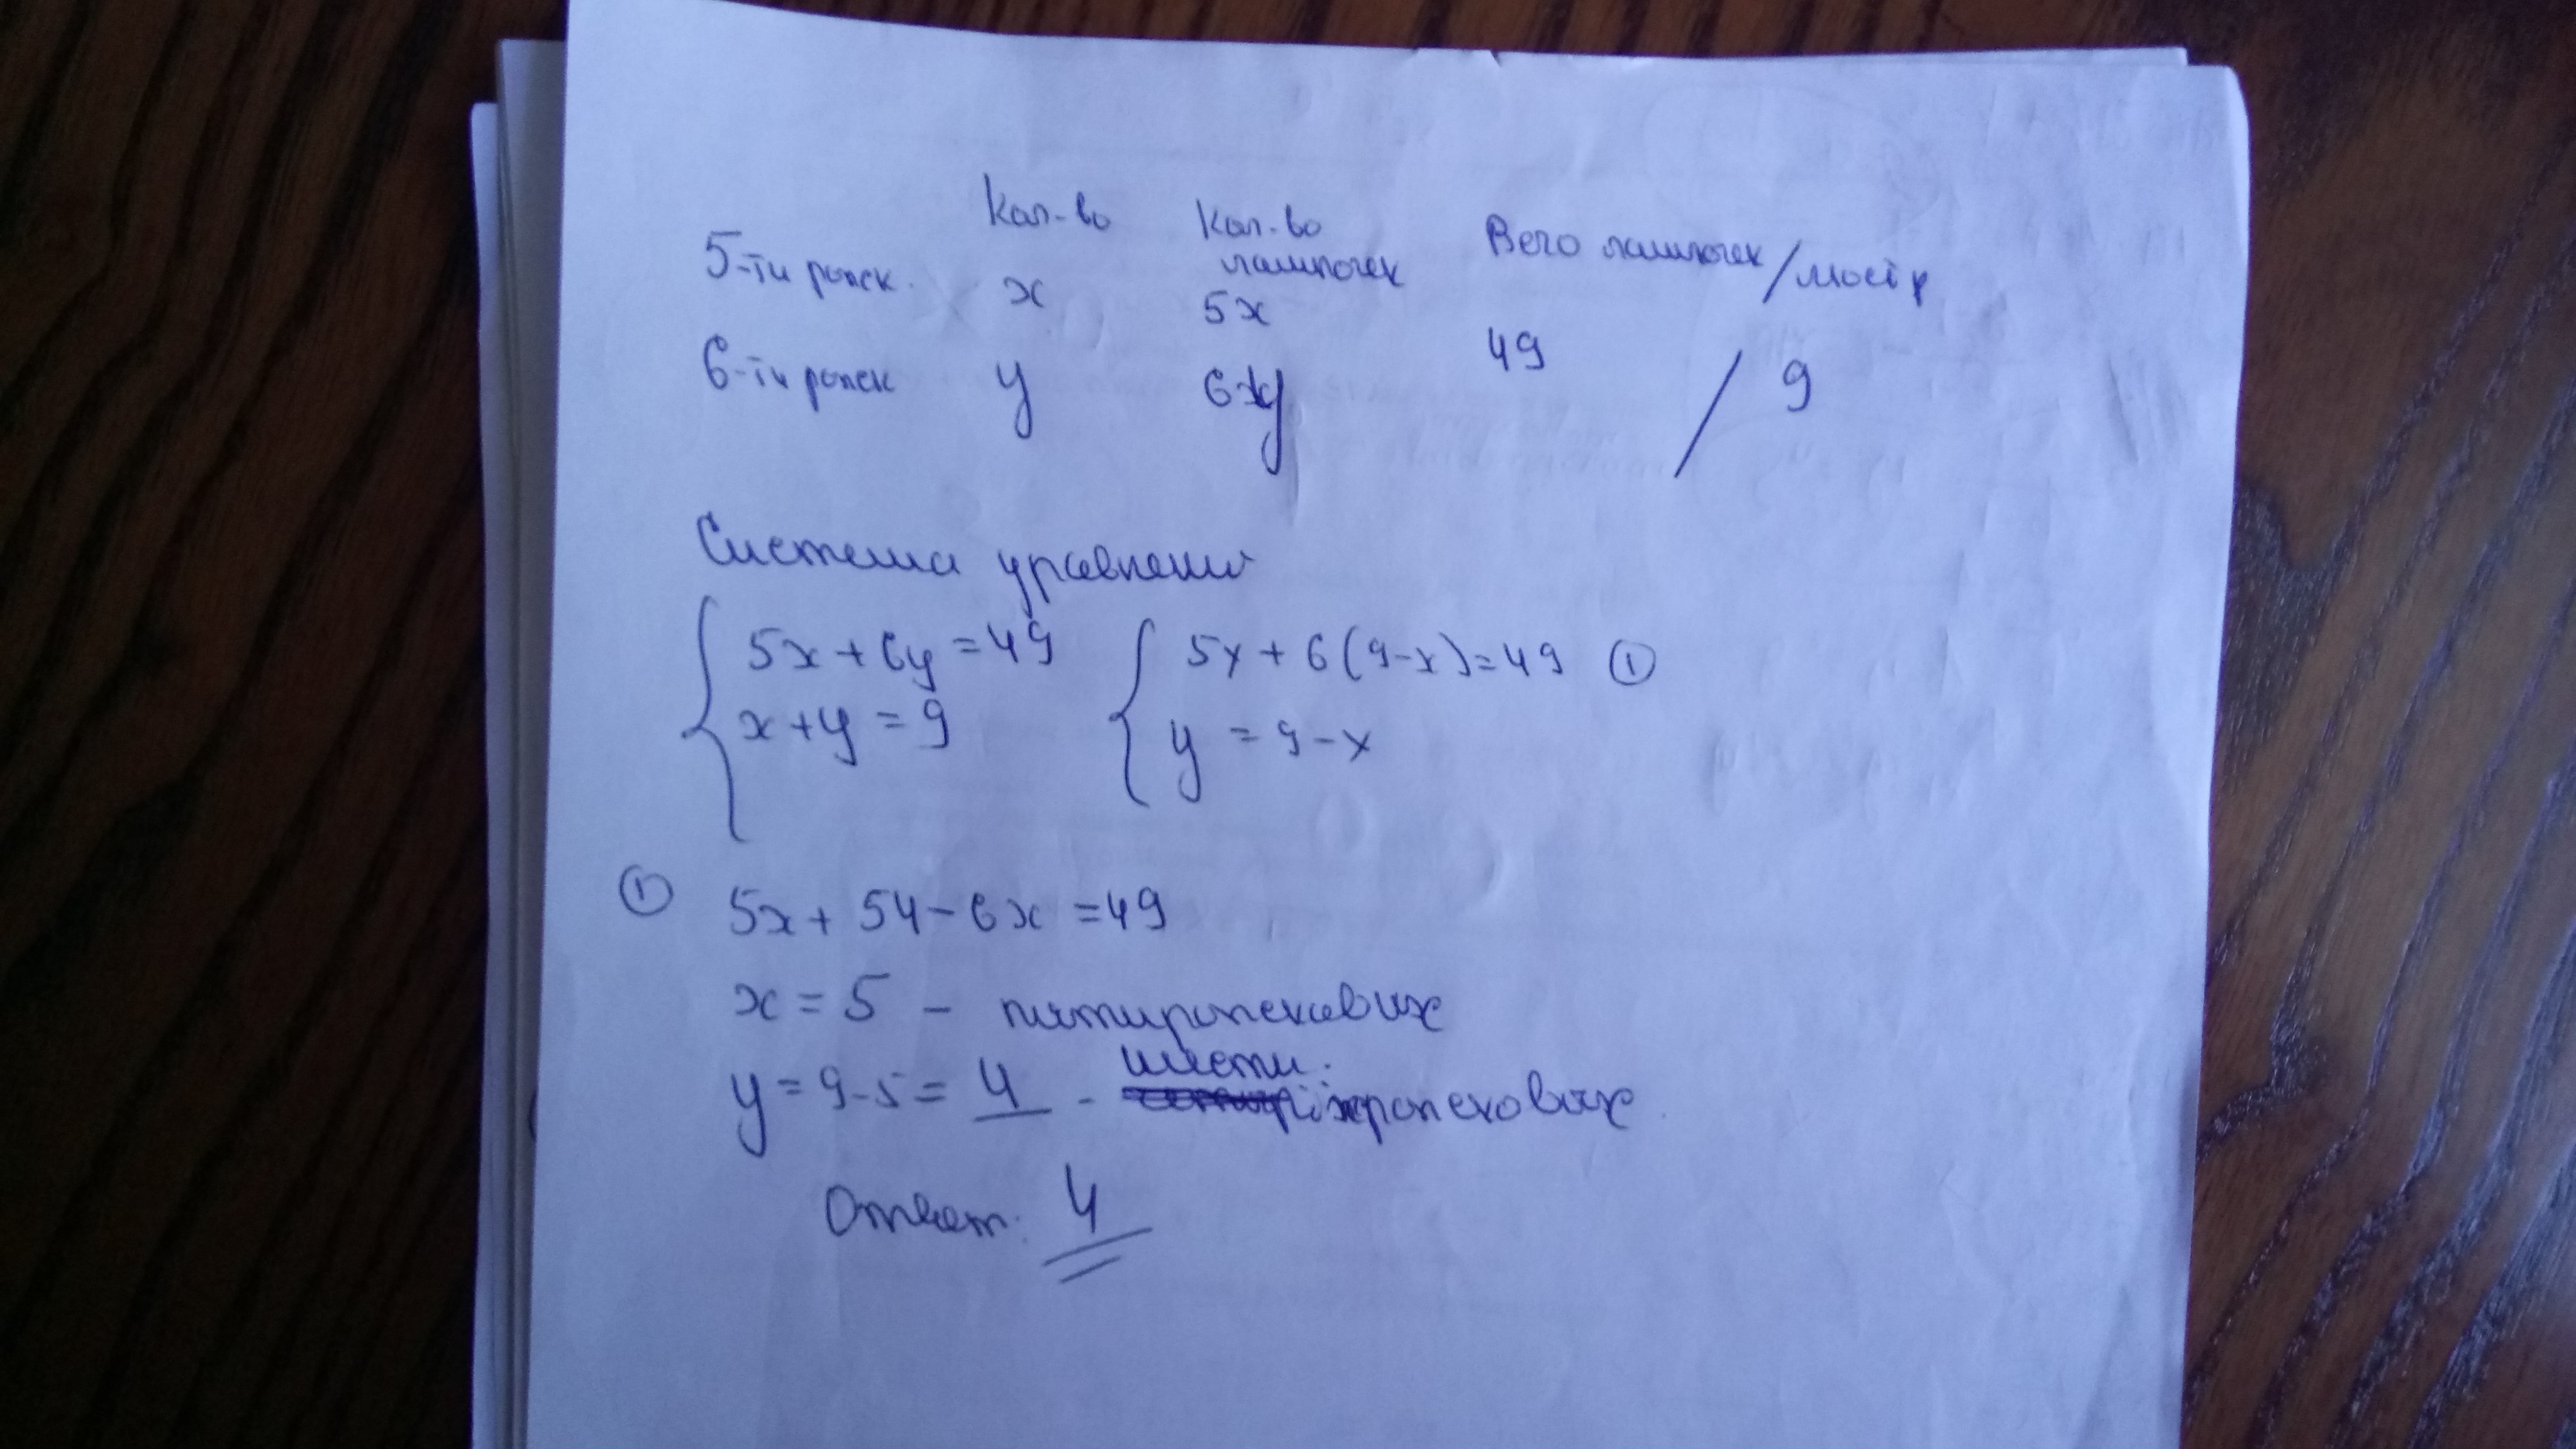 Кол-во Кол-во лампочек Всего лампочек / люстр
5-ти рожк. x 5x
6-ти рожк y 6y 49 / 9
Система уравнений
5x + 6y = 49
x + y = 9
5x + 6(9-x) = 49 ①
y = 9 - x
① 5x + 54 - 6x = 49
x = 5 - пятирожковых
y = 9-5 = 4 - шести рожковых
Ответ: 4